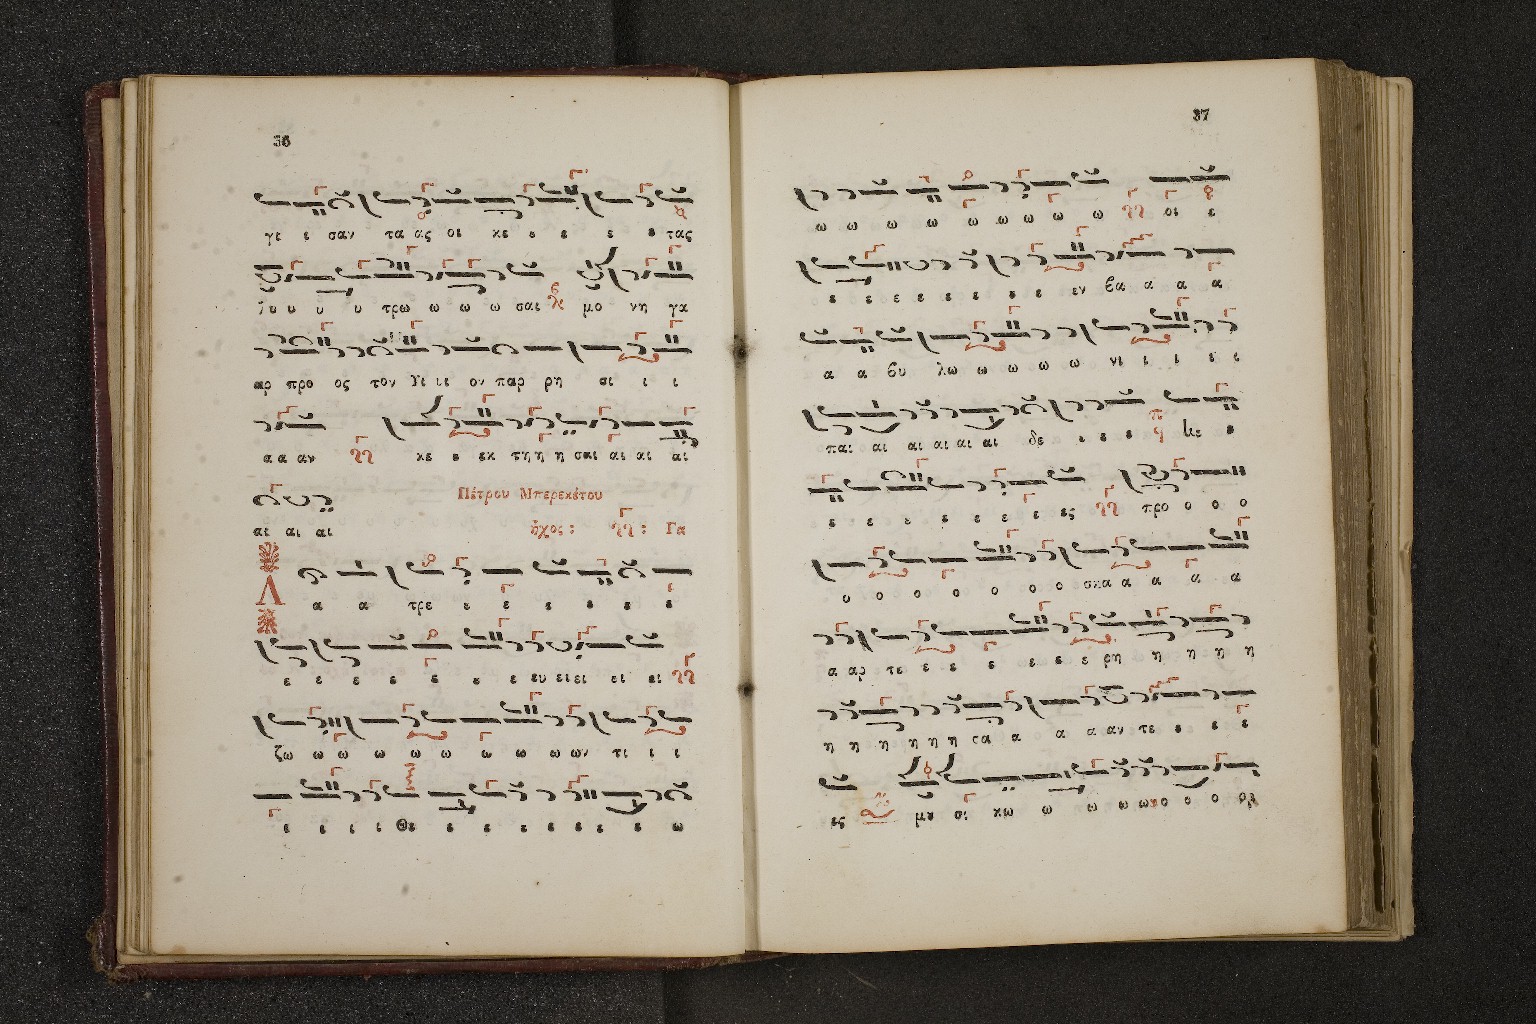 36
γι ι σαν τα ας οι κε ε ε ε ε τας
λυ υ υ υ τρω ω ω ω σαι μο νη γα
αρ προ ος τον Υι ιι ον παρ ρη σι ι ι
α α αν κε ε εκ τη η η σαι αι αι αι
Πέτρου Μπερεκέτου
αι αι αι ἦχος: Γα
Λ α α τρε ε ε ε ε ε ε
ε ε ε ε ε ε ε ευ ει ει ει ει
ζω ω ω ω ω ω ω ω ω ων τι ι ι
ι ι ι ι Θε ε ε ε ε ε ε ε ω
37
ω ω ω ω ω ω ω ω ω οι ε
ε ε ε ε ε ε ε ε εν βα α α α
α α βυ λω ω ω ω ω νι ι ι ι ι
παι αι αι αι αι αι δε ε ε ε κε ε
ε ε ε ε ε ε ε ες προ ο ο ο
ο ο ο ο ο ο ο σκα α α α α
α αρ τε ε ε ε ε ε ε ρη η η η η
η η η η η η τα α α α αν τε ε ε ε
ες μυ σι κω ω ω ω ω ο ο ο ορ